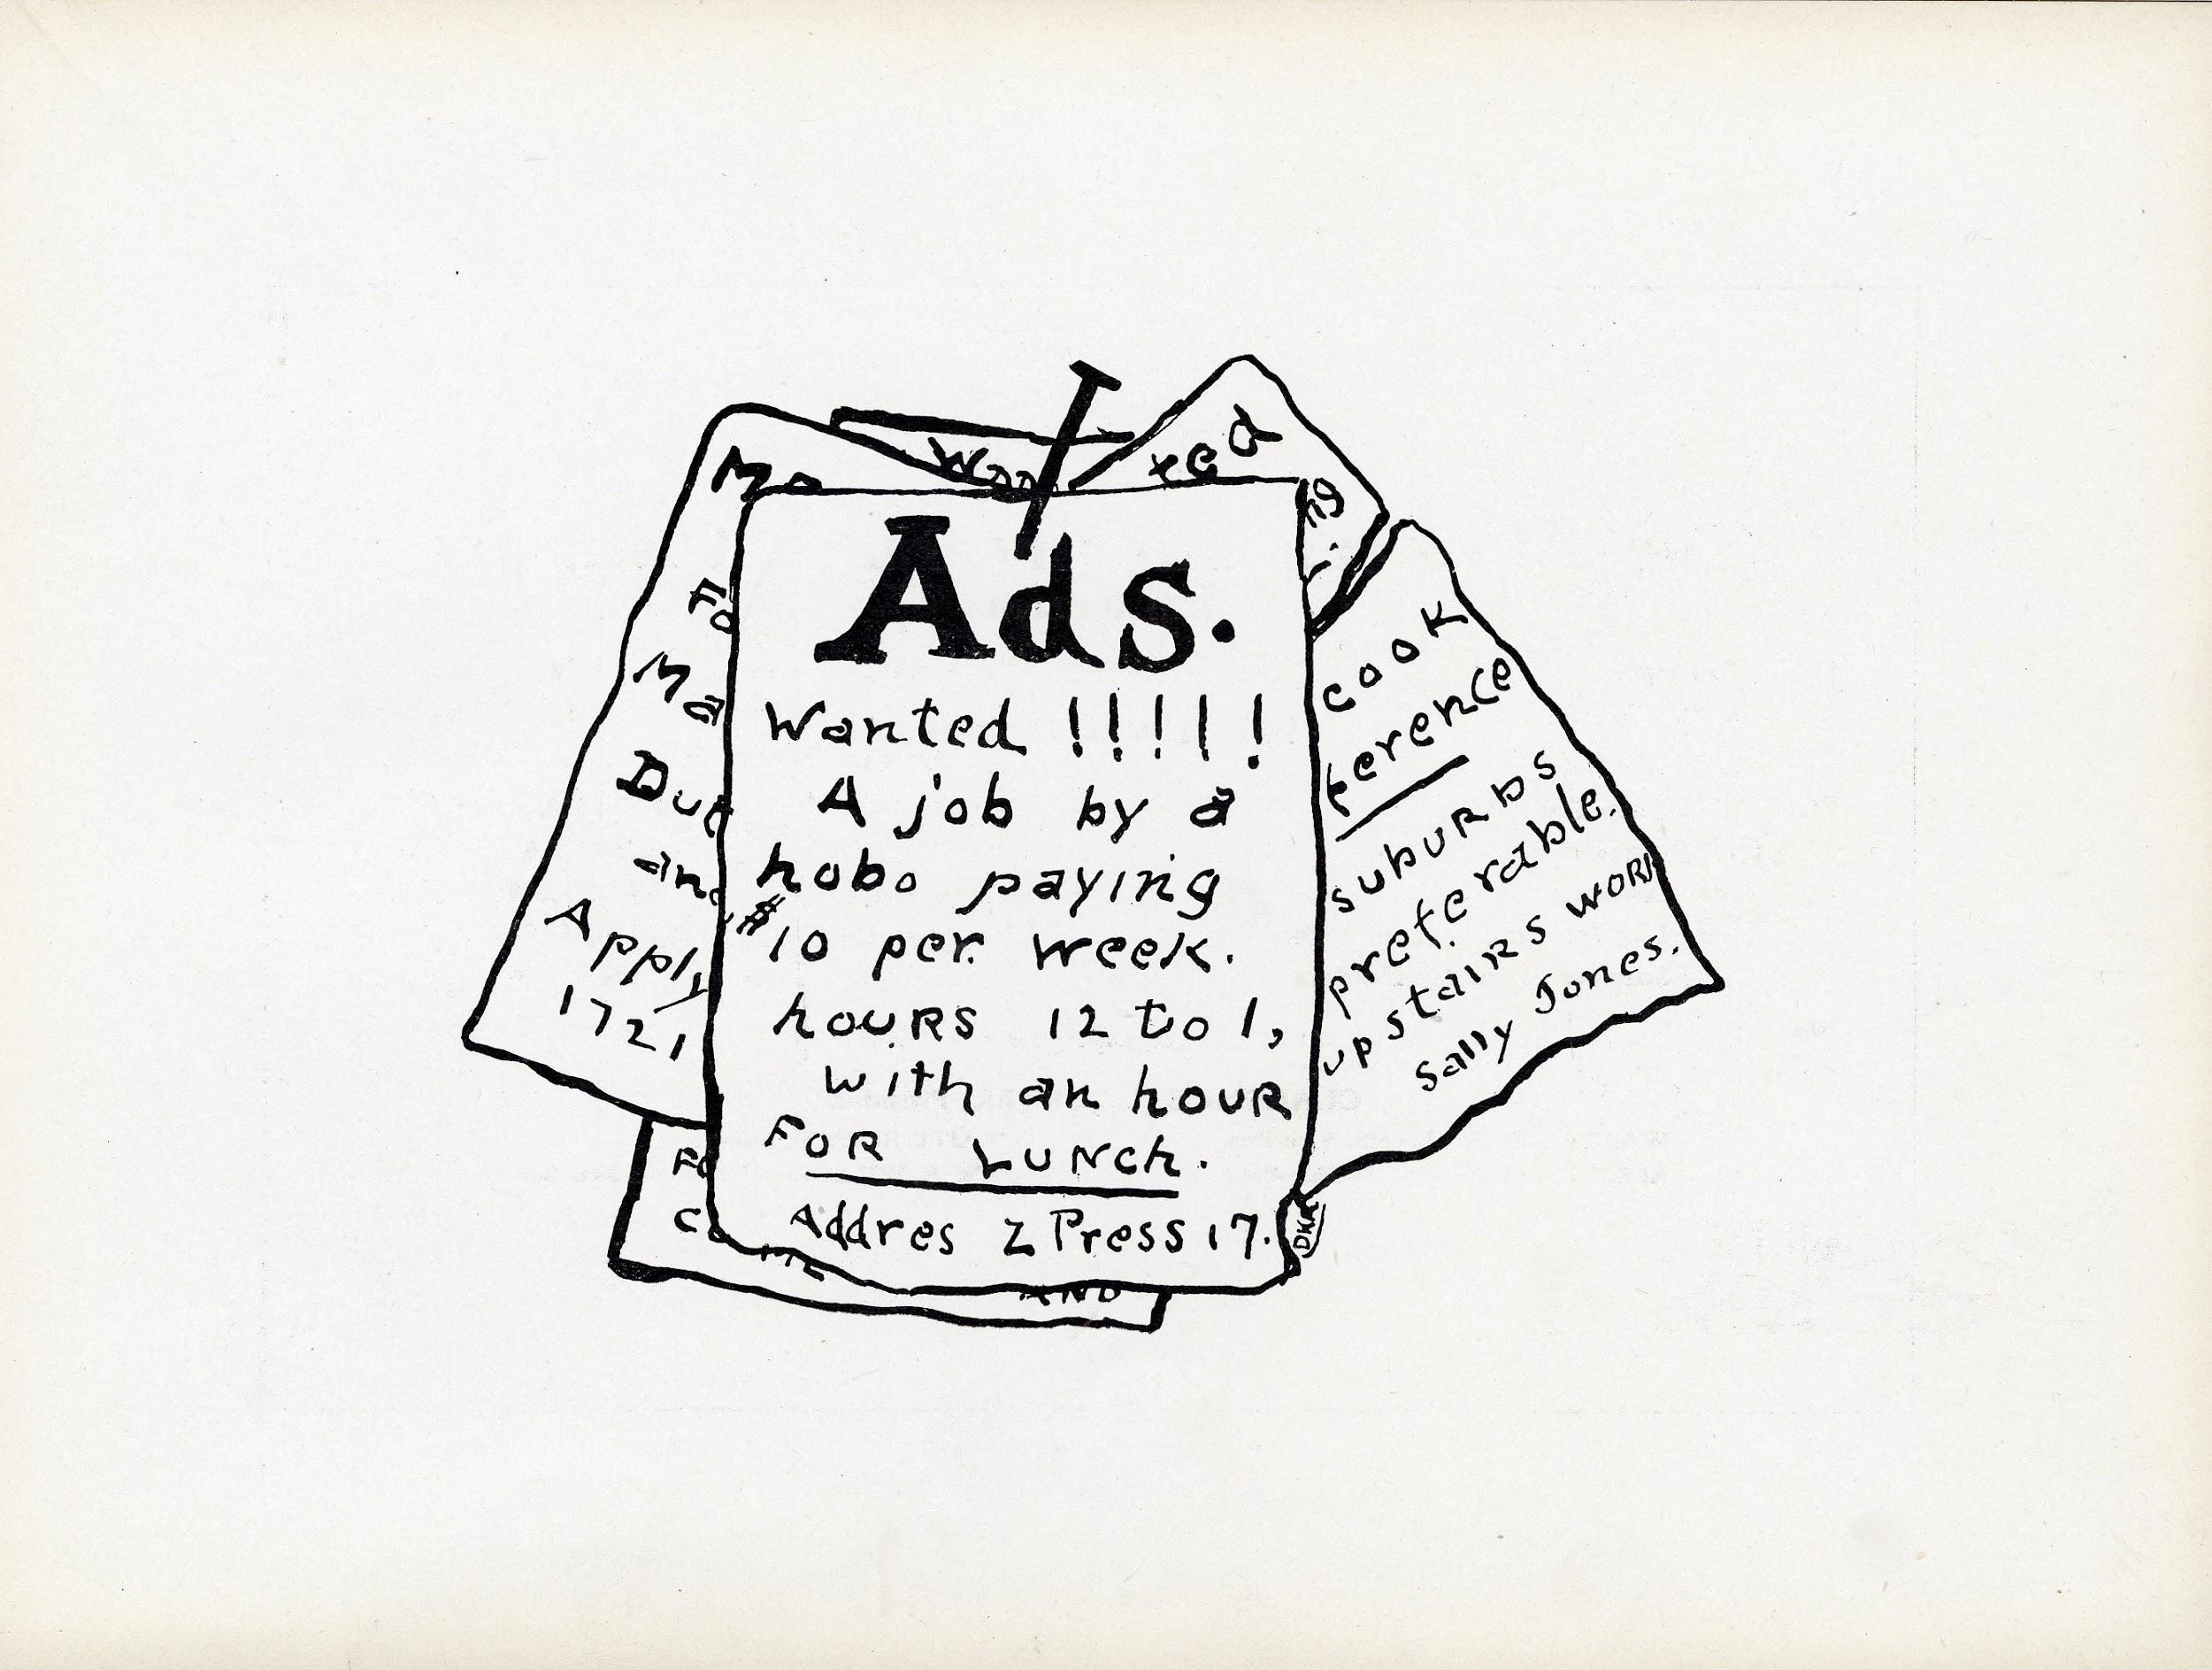 Ads.
Wanted !!!!!
A job by a
hobo paying
$10 per week.
hours 12 to 1,
with an hour
FOR LUNCh.
Addres Z Press 17.
DKK
Ma
Fo
Ma
Apply
1721
Wan
ted
cook
ference
suburbs
preferable.
upstairs work
Sally Jones.
Fo
Co
AND